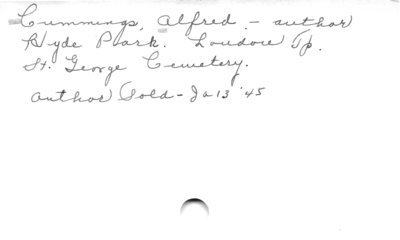 Cummings, Alfred. - author
Hyde Park. London Tp.
St. George Cemetery.
author Told - Ja 13 '45